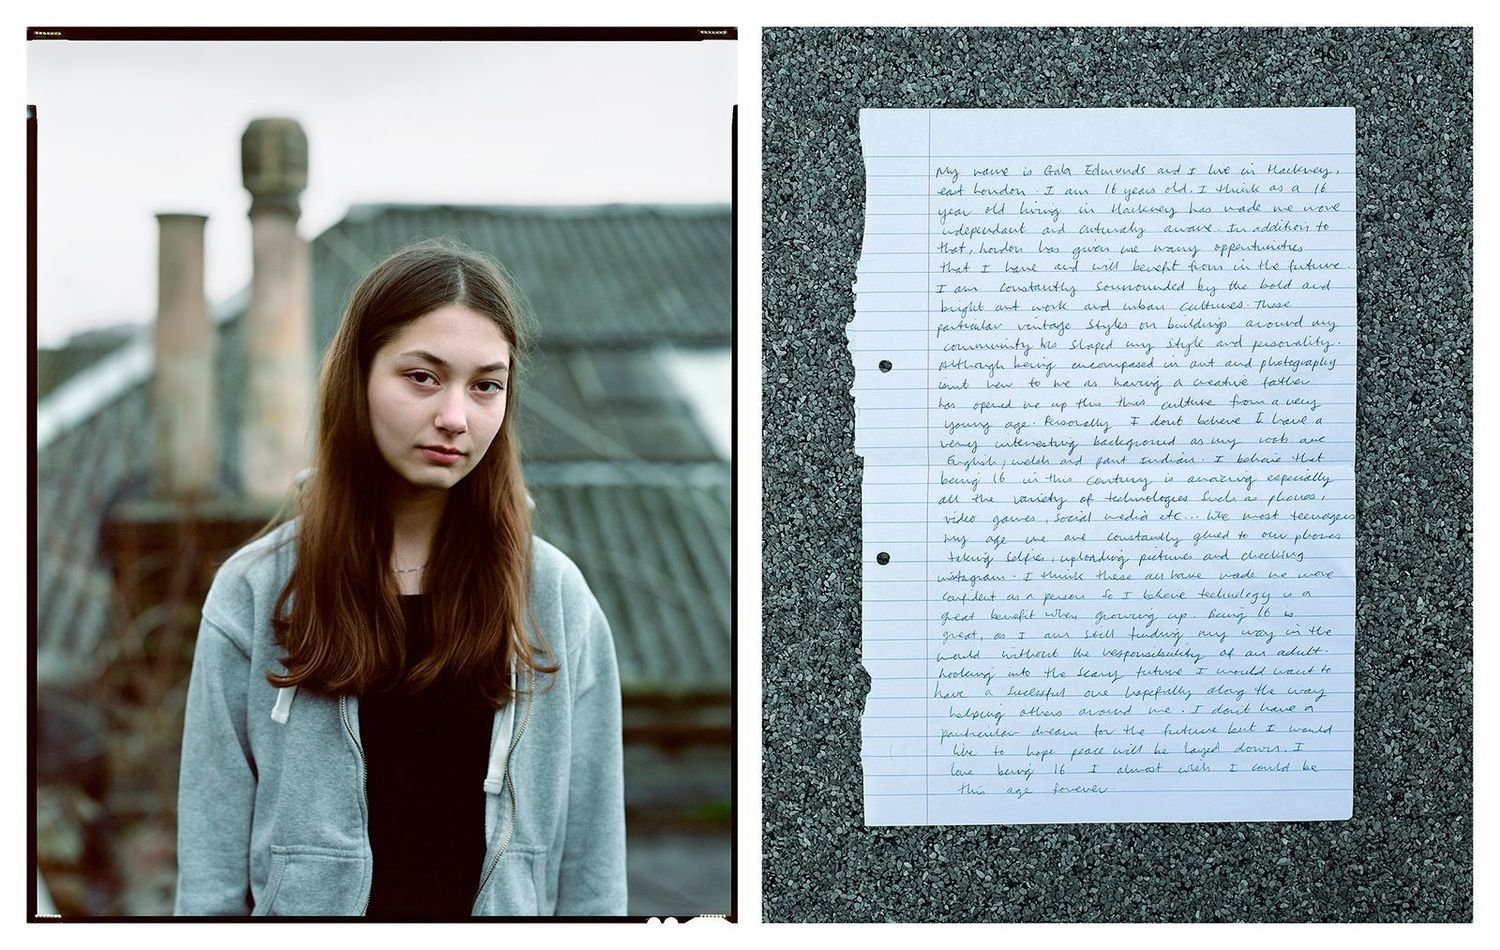 My name is Gala Edmunds and I live in Hackney,
east London. I am 16 years old. I think as a 16
year old living in Hackney has made me more
independant and cuturaly aware. In addition to
that, London has given me many oppertunities
that I have and will benefit from in the future.
I am constantly sourrounded by the bold and
bright art work and urban cultures. These
particular vintage styles on buildings around my
community has shaped my style and personality.
Although being encompased in art and photography
isnt new to me as having a creative father
has opened me up this this culture from a very
young age. Personally I dont believe I have a
very interesting background as my roots are
English, welsh and part Indian. I believe that
being 16 in this century is amazing especially
all the variety of technologies such as phones,
video games, social media etc... like most teenagers
my age we are constantly glued to our phones
taking selfies, uploading pictures and checking
instagram. I think these all have made me more
confident as a person so I believe technology is a
great benefit when growing up. Being 16 is
great, as I am still finding my way in the
world without the responsibility of an adult.
Looking into the scary future I would want to
have a sucessful one hopefully along the way
helping others around me. I don't have a
particular dream for the future but I would
like to hope peace will be layed down. I
love being 16 I almost wish I could be
this age forever.